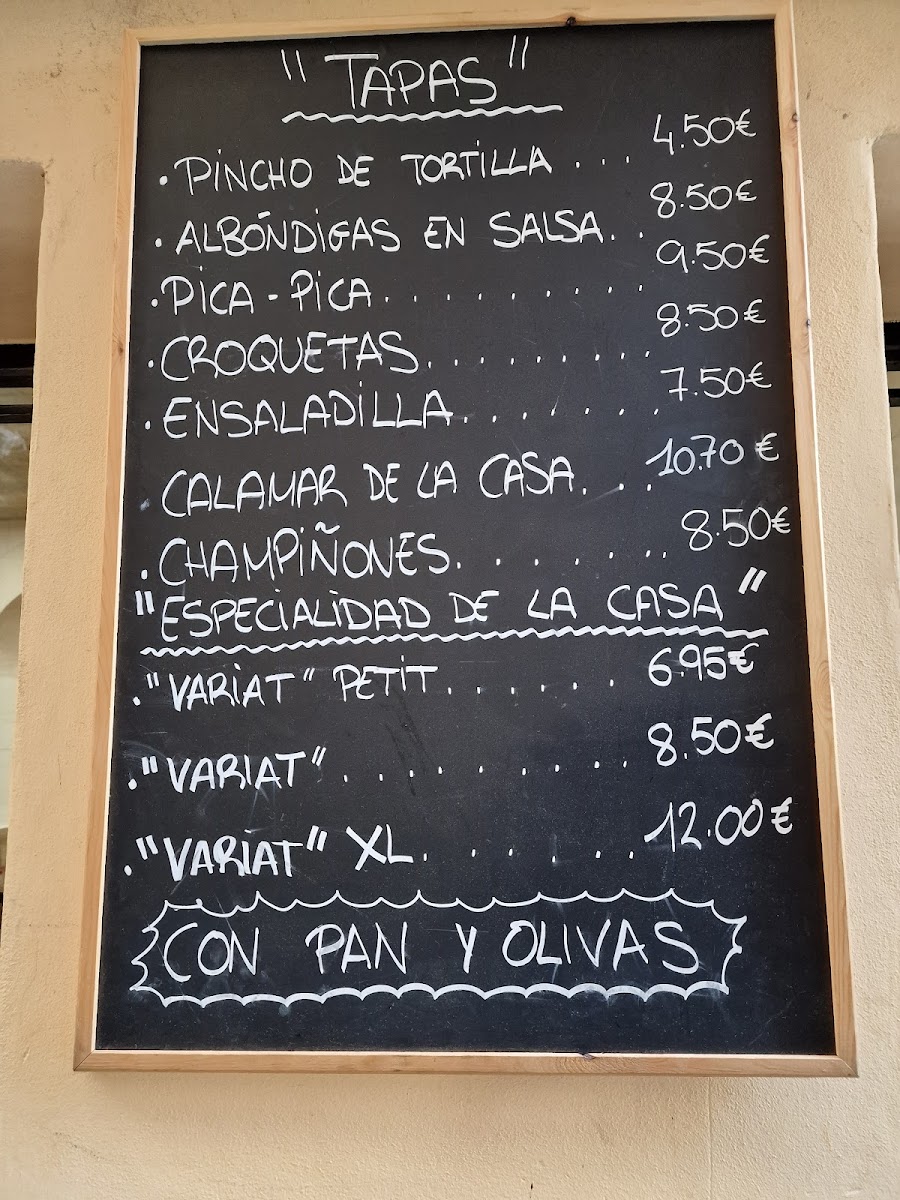 "TAPAS"
· PINCHO DE TORTILLA ... 4.50€
· ALBÓNDIGAS EN SALSA. . 8.50€
· PICA-PICA. . . . . . . . . 9.50€
· CROQUETAS. . . . . . . . . 8.50€
· ENSALADILLA. . . . . . . 7.50€
· CALAMAR DE LA CASA. . . 10.70€
· CHAMPIÑONES. . . . . . . 8.50€
"ESPECIALIDAD DE LA CASA"
· "VARIAT" PETIT. . . . . . . 6.95€
· "VARIAT" . . . . . . . . . 8.50€
· "VARIAT" XL. . . . . . 12.00€
CON PAN Y OLIVAS